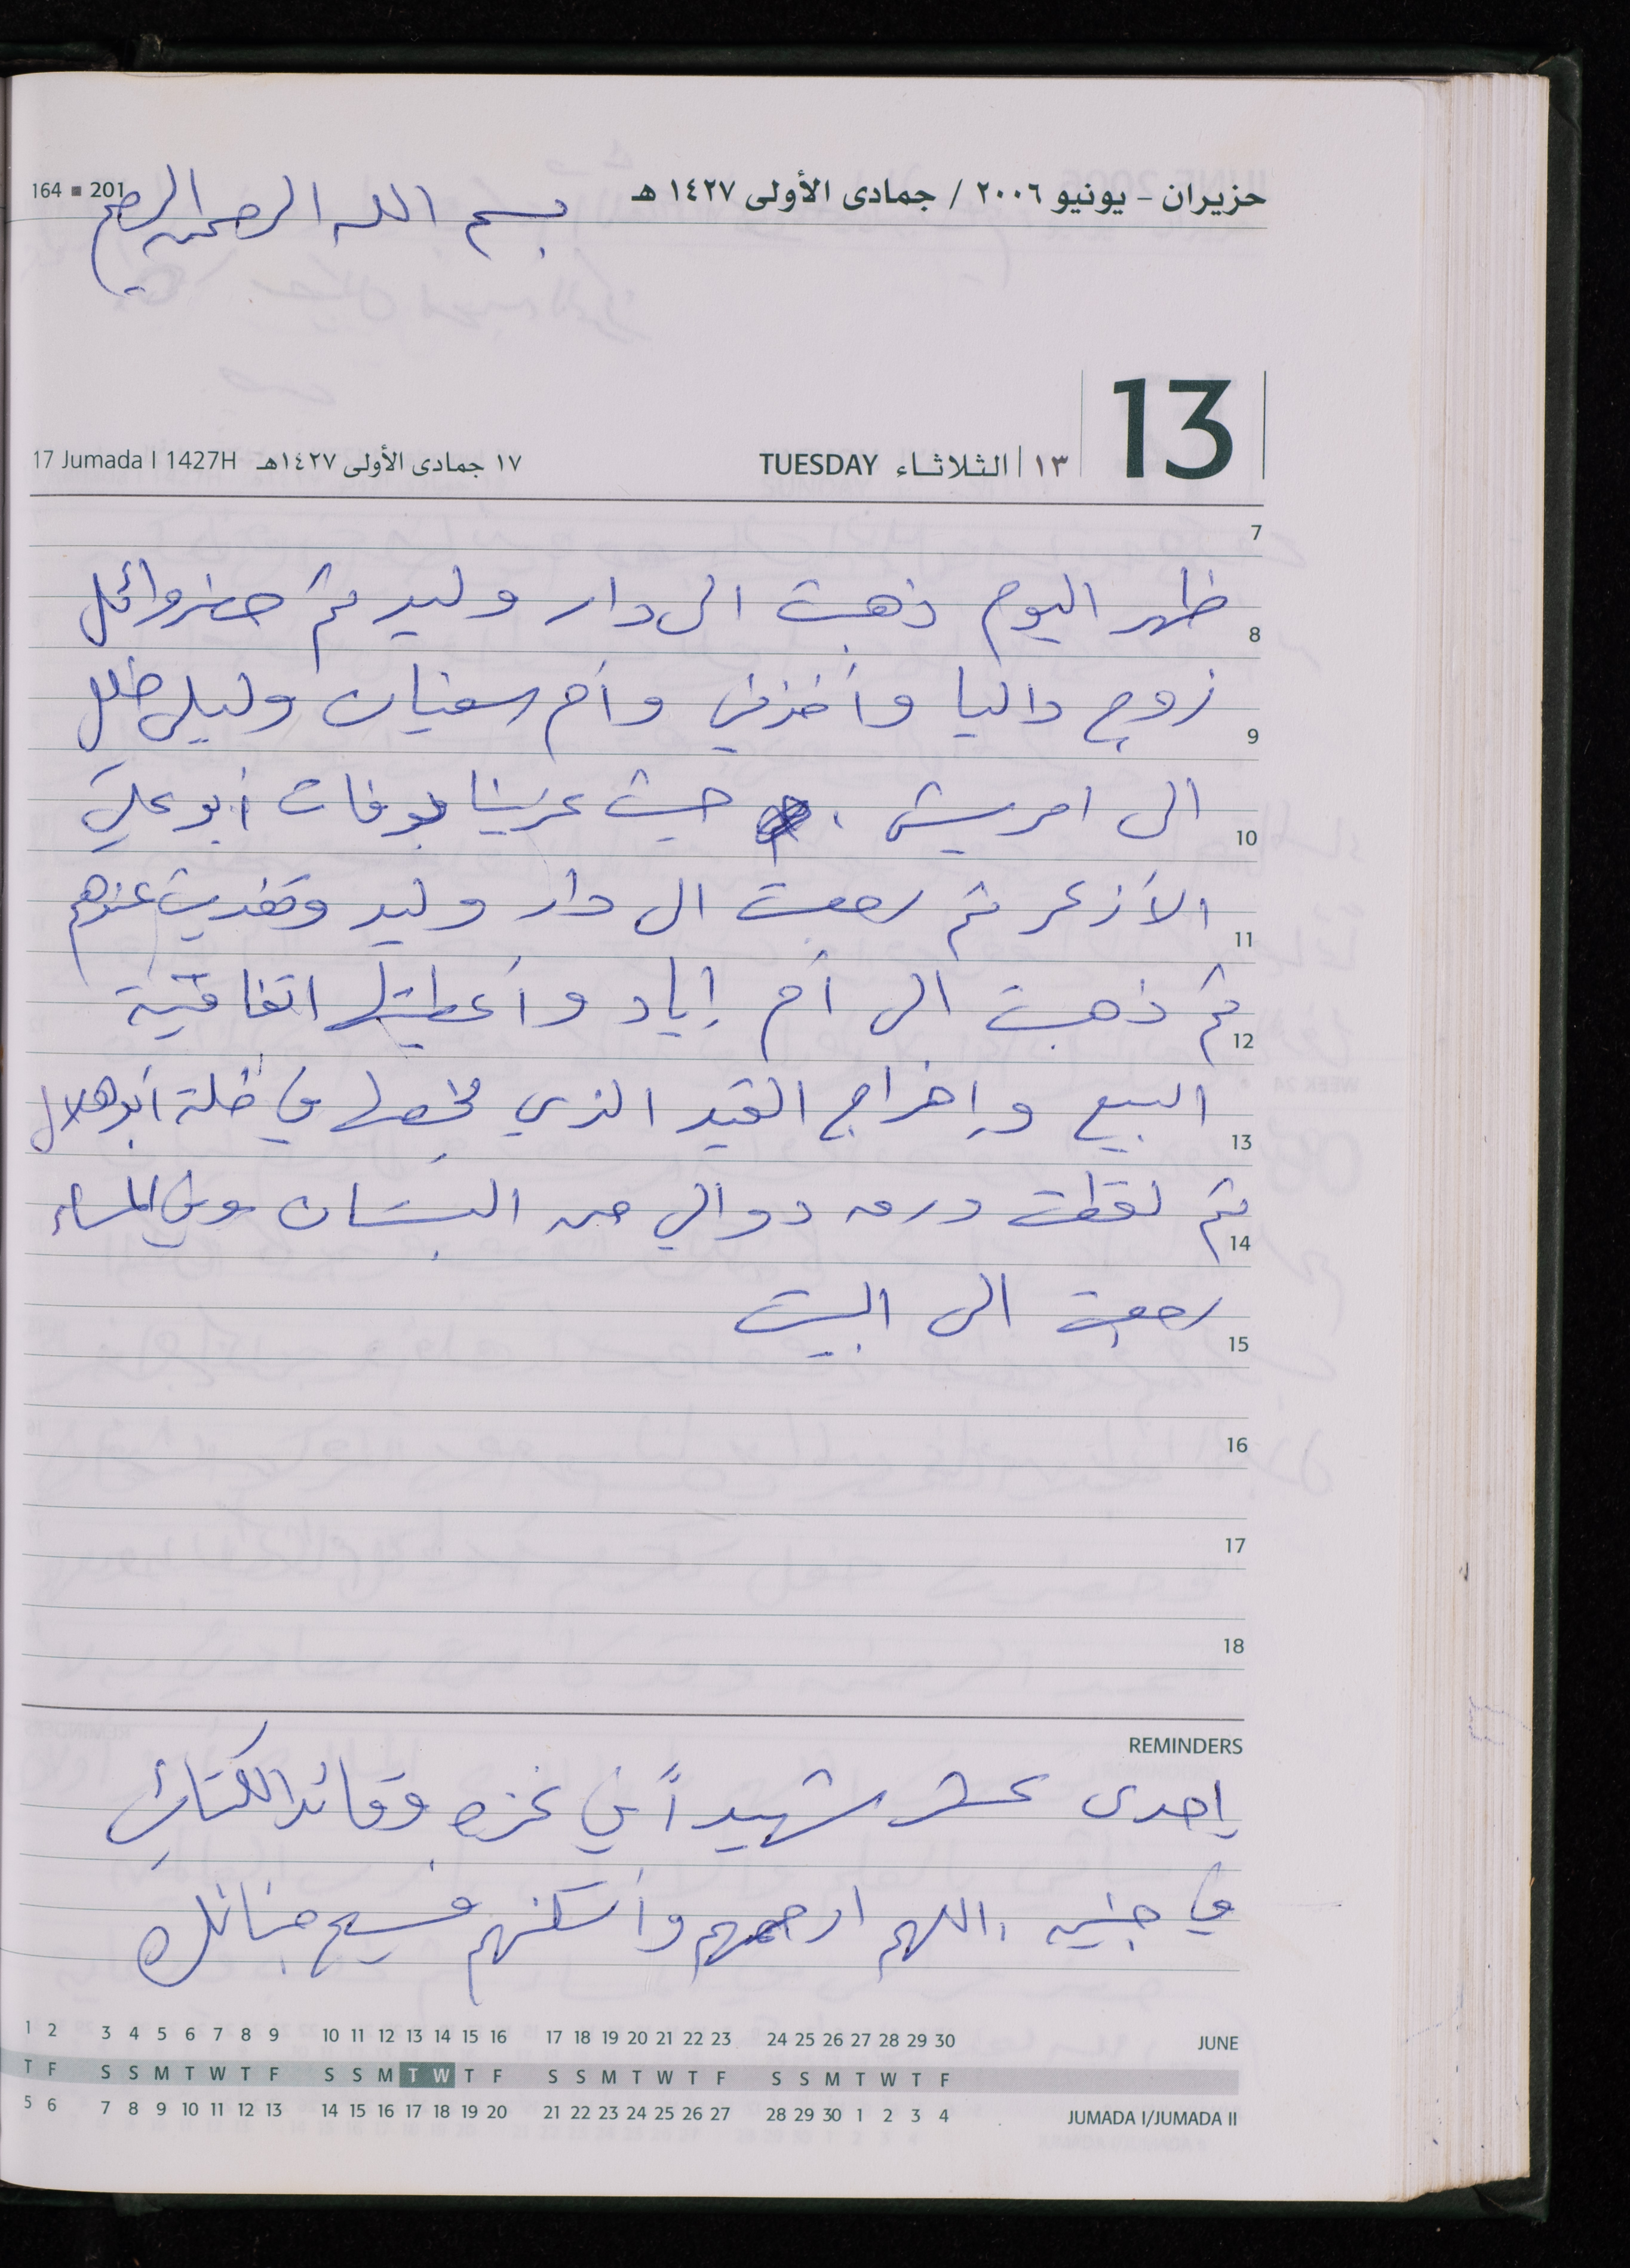 حزيران - يونيو ٢٠٠٦ / جمادى الأولى ١٤٢٧ هـ
164 ■ 201
بسم الله الرحمن الرحيم
13
١٣ الثلاثاء TUESDAY
١٧ جمادى الأولى ١٤٢٧هـ 17 Jumada I 1427H
7
ظهر اليوم ذهبت الى دار وليد ثم حضر وائل
8
زوج داليا وأخذني وأم سفيان وليلى
9
الى امريش . حيث عزينا بوفات أبو علي
10
الأزعر ثم رجعت الى دار وليد وتغديت عندهم
11
ثم ذهبت الى أم إياد وأعطيتها اتفاقية
12
البيع وإخراج القيد الذي يخصها في خلة أبو هلال
13
ثم لقطت ورق دوالي من البستان وفي المساء
14
رجعت الى البيت
15
16
17
18
REMINDERS
إحدى عشر شهيداً في غزه وقائد الكتائب
في جنين . اللهم ارحمهم وأسكنهم فسيح جنانك
1 2 3 4 5 6 7 8 9 10 11 12 13 14 15 16 17 18 19 20 21 22 23 24 25 26 27 28 29 30 JUNE
T F S S M T W T F S S M T W T F S S M T W T F S S M T W T F
5 6 7 8 9 10 11 12 13 14 15 16 17 18 19 20 21 22 23 24 25 26 27 28 29 30 1 2 3 4 JUMADA I/JUMADA II